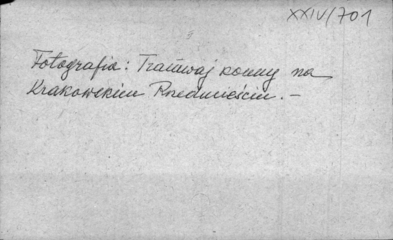 XXIV/701
Fotografia: Tramwaj konny na
Krakowskim Przedmieściu. –